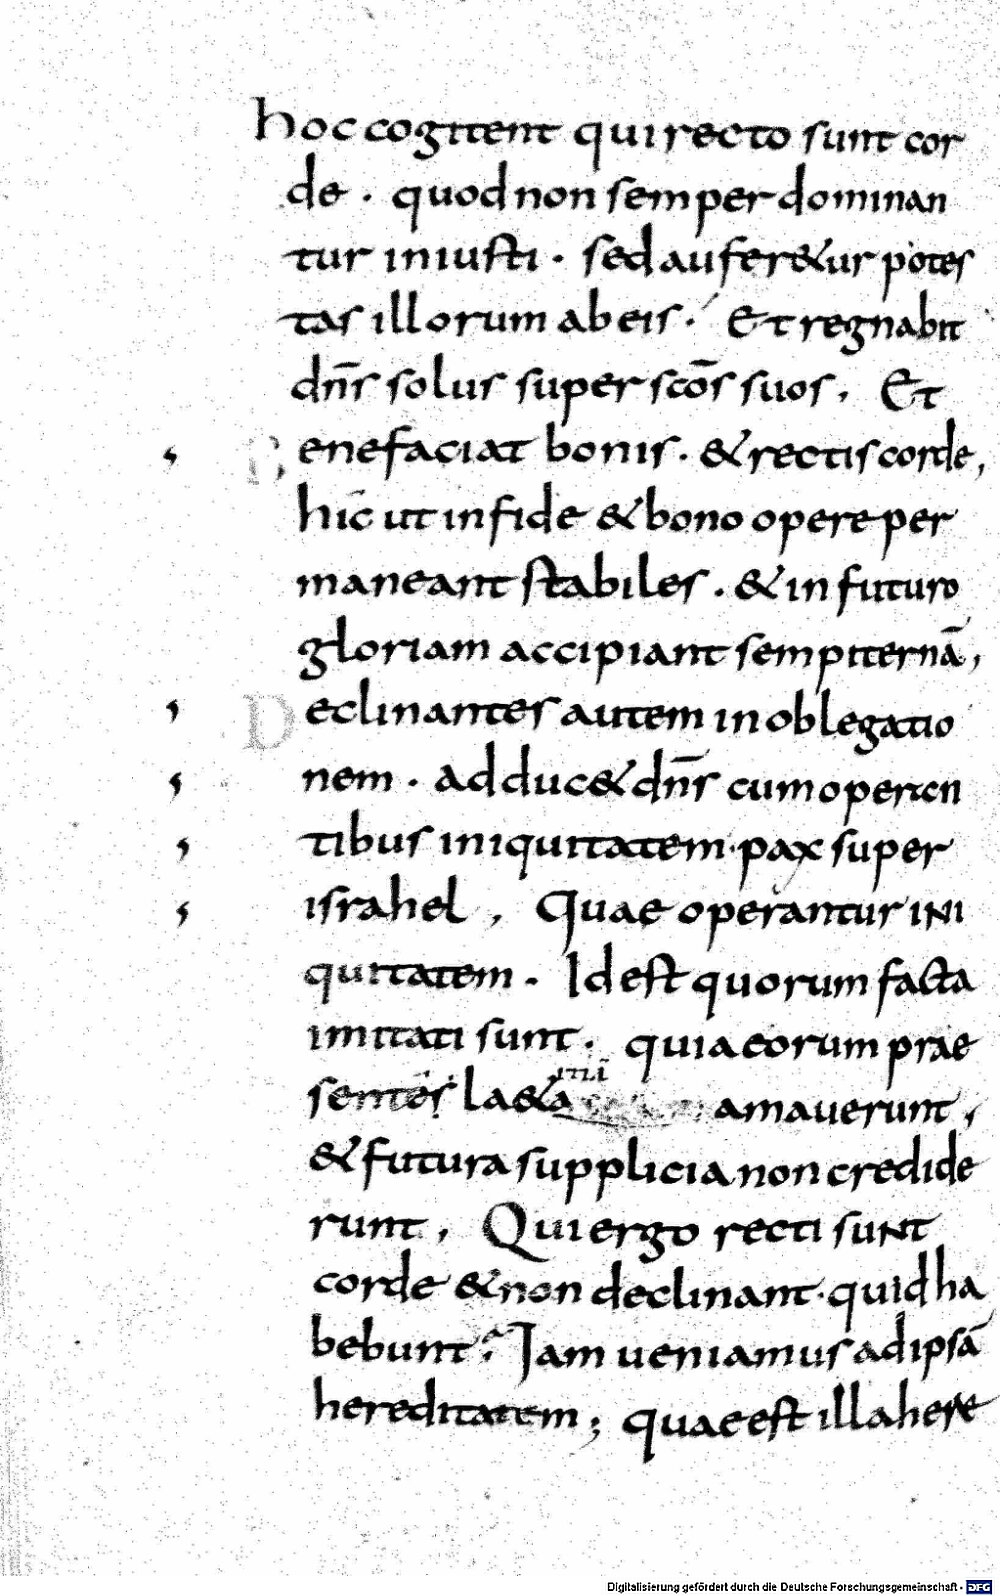 hoc cogitent qui recto sunt cor
de . quod non semper dominan
tur iniusti . sed aufer&ur potes
tas illorum ab eis . Et regnabit
dn̄s solus super scōs suos , Et
Benefaciat bonis . & rectis corde ,
hic ut in fide & bono opere per
maneant stabiles . & in futuro
gloriam accipiant sempiternā ,
Declinantes autem in oblegatio
nem . adduc& dn̄s cum operan
tibus iniquitatem · pax super
israhel , Quae operantur ini
quitatem . Id est quorum facta
imitati sunt . quia eorum prae
sentes la&a amauerunt ,
& futura supplicia non credide
runt , Qui ergo recti sunt
corde & non declinant · quid ha
bebunt ? Iam ueniamus ad ipsā
hereditatem ; quae est illa here
Digitalisierung gefördert durch die Deutsche Forschungsgemeinschaft - DFG